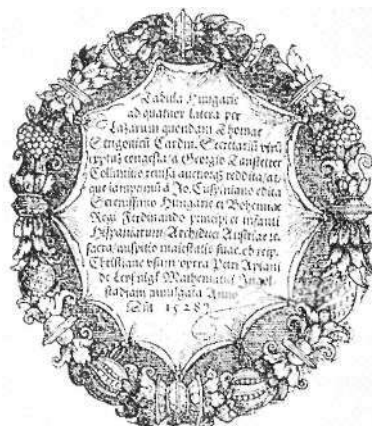 Tabula Hungarie
ad quatuor latera per
Lazarum quendam Thomae
Strigonien̄ Cardin. Secretariū virū
exptū congesta, a Georgio Tanstetter
Collimitio revisa auctiorq3 reddita, at,
que iamprimū a Jo. Cuspiniano edita
Serenissimo Hungarie et Bohemiae
Regi Ferdinando principi et infanti
Hispaniarum, Archiduci Austriae &c.
sacra, auspitio maiestatis suae, ob reip.
Christiane usum, opera Petri Apiani
de Leyßnigk Mathematici Ingol-
stadiani invulgata Anno
Dn̄i 1528